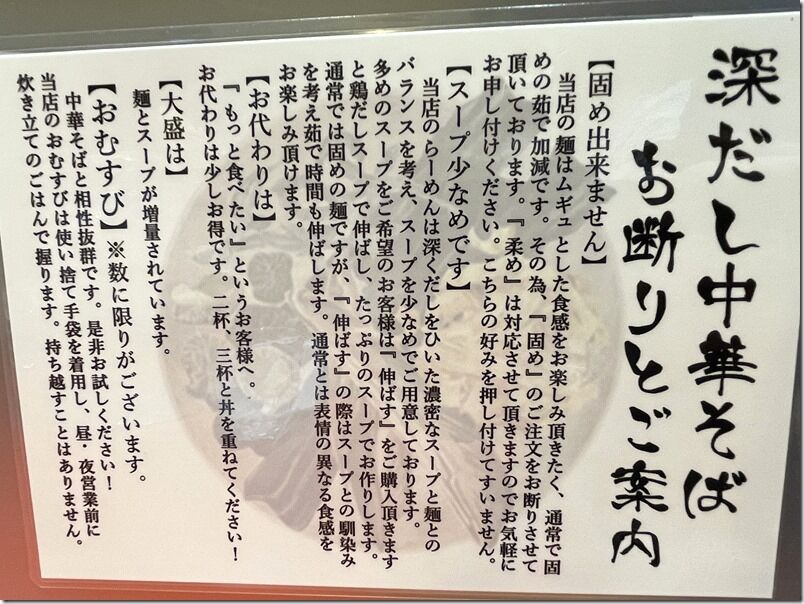 深だし中華そば
お断りとご案内
【固め出来ません】
当店の麺はムギュとした食感をお楽しみ頂きたく、通常で固
めの茹で加減です。その為、『固め』のご注文をお断りさせて
頂いております。『柔め』は対応させて頂きますのでお気軽に
お申し付けください。こちらの好みを押し付けてすいません。
【スープ少なめです】
当店のらーめんは深くだしをひいた濃密なスープと麺との
バランスを考え、スープを少なめでご用意しております。
多めのスープをご希望のお客様は『伸ばす』をご購入頂きます
と鶏だしスープで伸ばし、たっぷりのスープでお作りします。
通常では固めの麺ですが、『伸ばす』の際はスープとの馴染み
を考え茹で時間も伸ばします。通常とは表情の異なる食感を
お楽しみ頂けます。
【お代わりは】
『もっと食べたい』というお客様へ。
お代わりは少しお得です。二杯、三杯と丼を重ねてください！
【大盛は】
麺とスープが増量されています。
【おむすび】※数に限りがございます。
中華そばと相性抜群です。是非お試しください！
当店のおむすびは使い捨て手袋を着用し、昼・夜営業前に
炊き立てのごはんで握ります。持ち越すことはありません。